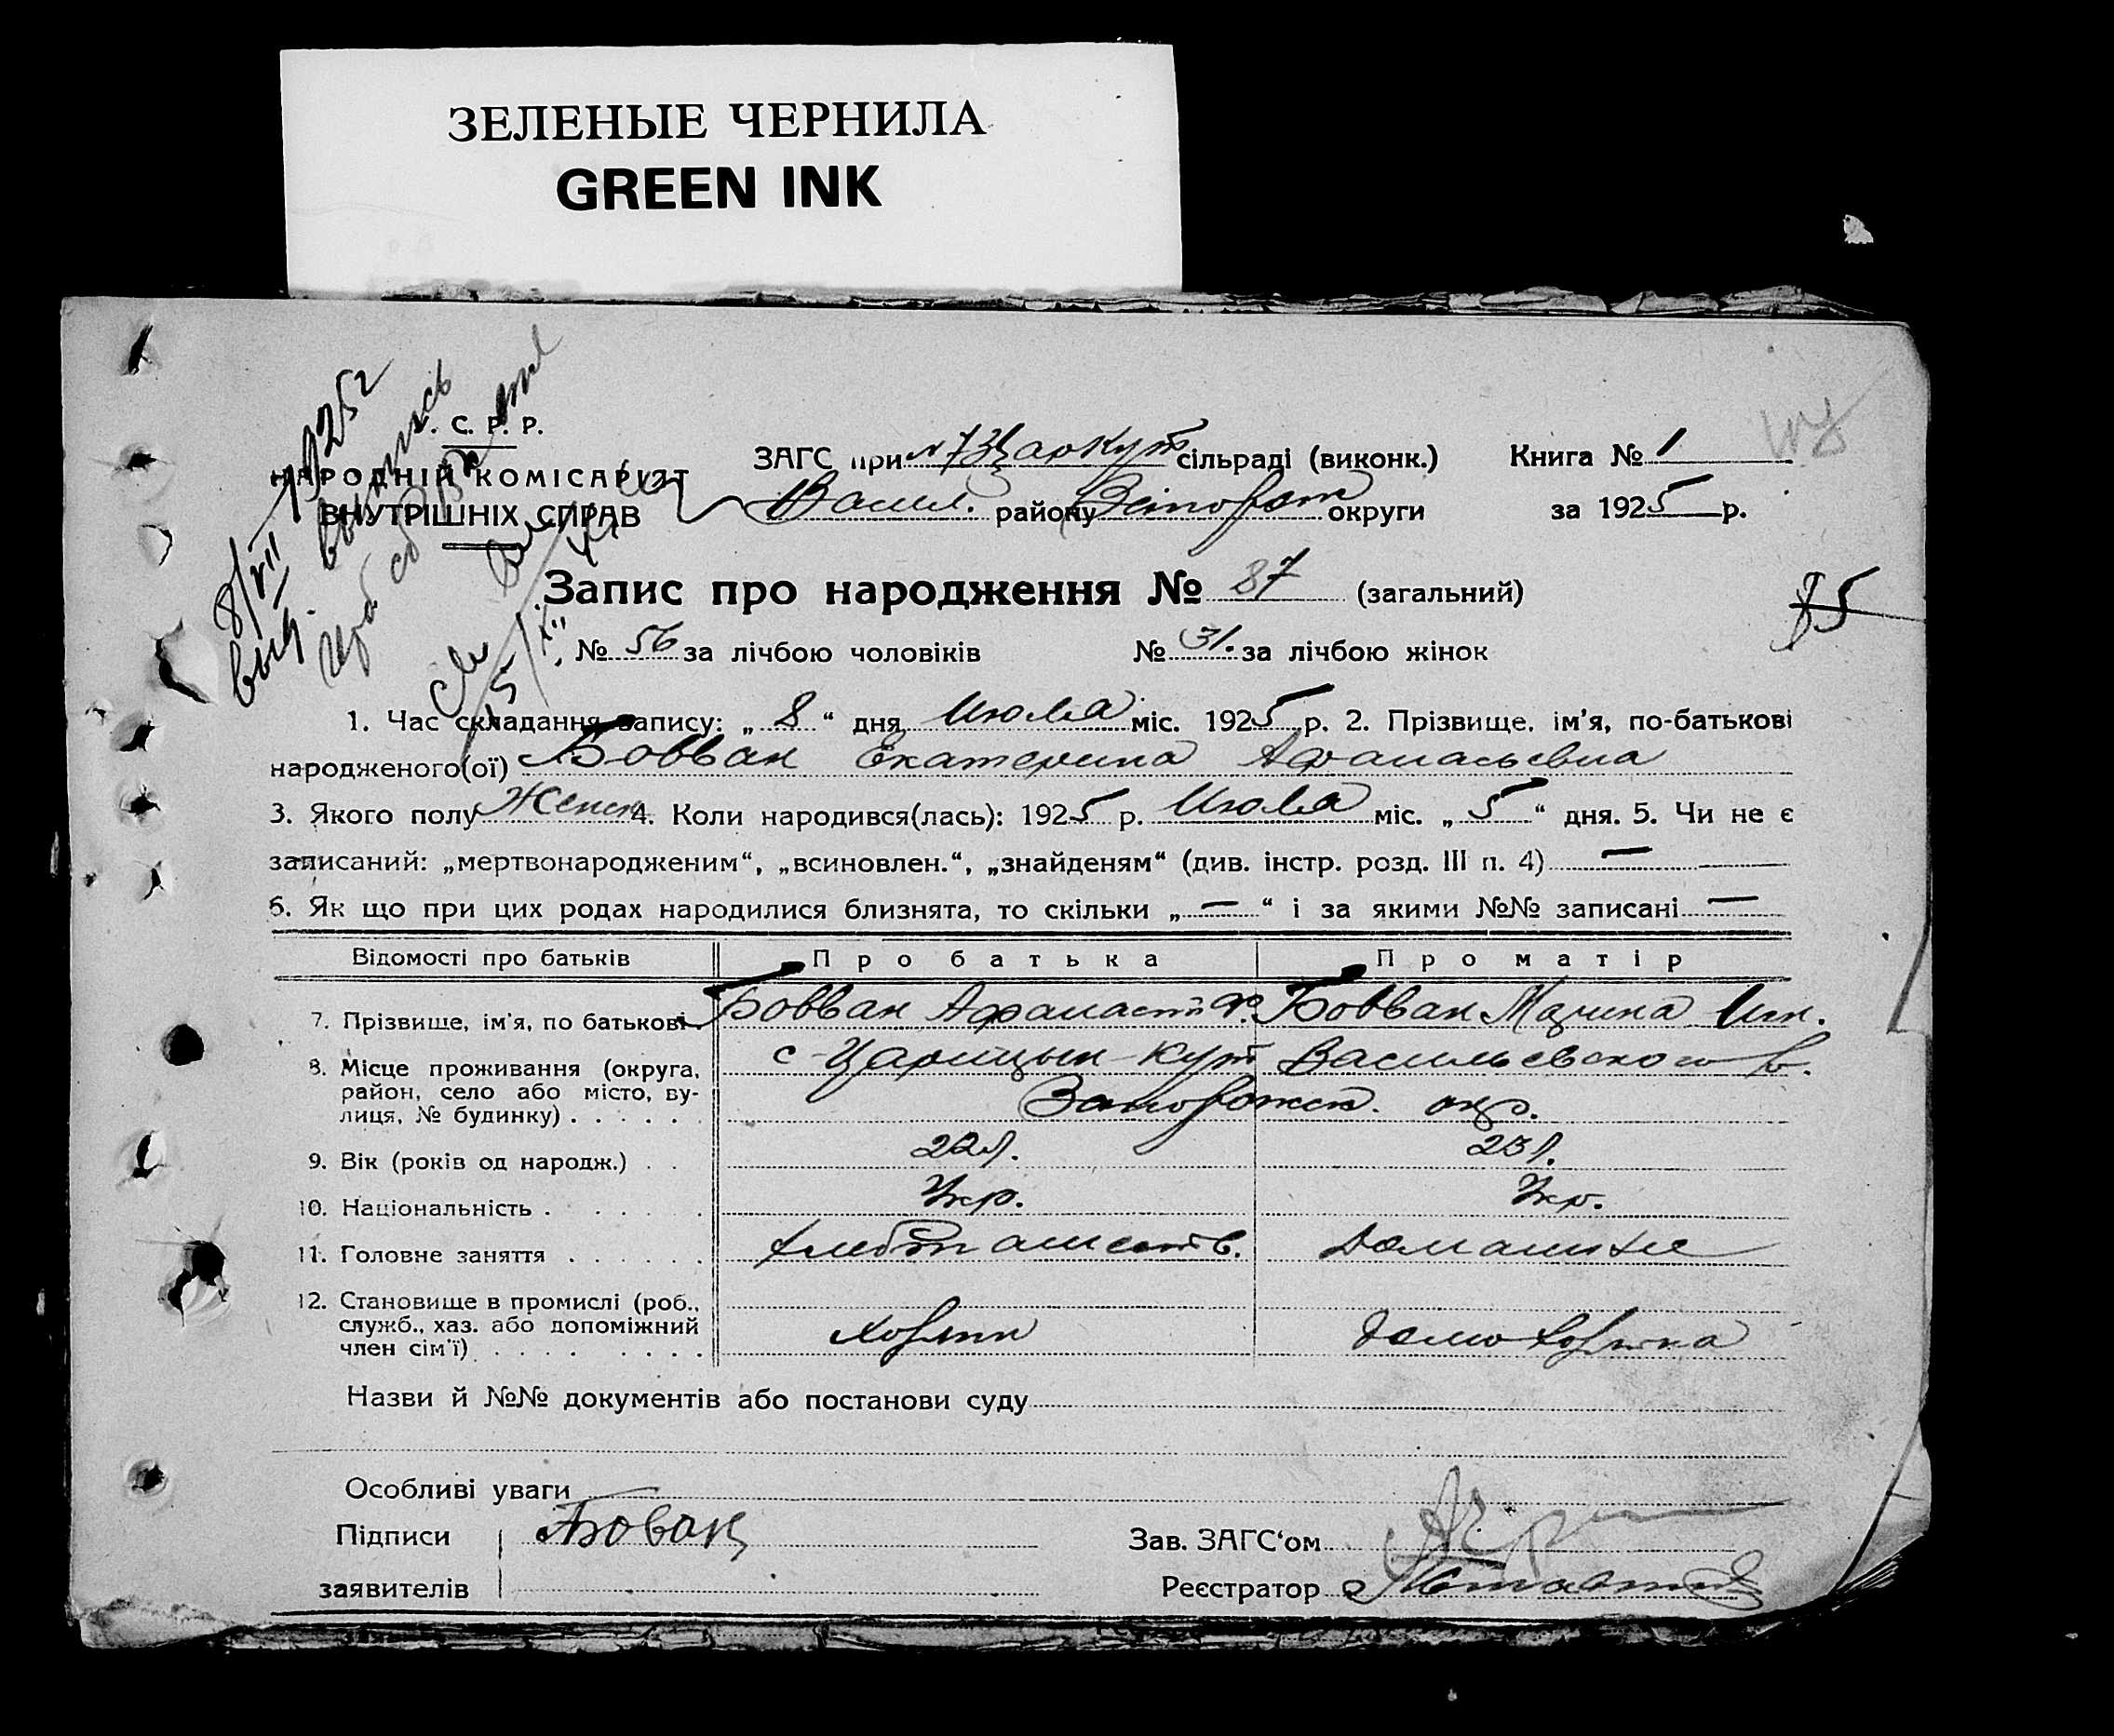 ЗЕЛЕНЫЕ ЧЕРНИЛА
GREEN INK
С. Р. Р.
НАРОДНІЙ КОМІСАРІЯТ
ВНУТРІШНІХ СПРАВ
8/VII 1925 г
выпись
ЗАГС при сільраді (виконк.) Книга № 1
Васил. району округи за 1925 р.
Запис про народження № 87 (загальний)
85
№ 56 за лічбою чоловіків № 31. за лічбою жінок
1. Час складання запису: „ 8 “ дня Июля міс. 1925 р. 2. Прізвище, ім'я, по-батькові
народженого(ої) Бовван Екатерина Афанасьевна
3. Якого полу Женск 4. Коли народився(лась): 1925 р. Июля міс. „ 5 “ дня. 5. Чи не є
записаний: „мертвонародженим“, „всиновлен.“, „знайденям“ (див. інстр. розд. III п. 4) —
6. Як що при цих родах народилися близнята, то скільки „ — “ і за якими №№ записані —
Відомості про батьків Про батька Про матір
7. Прізвище, ім'я, по батькові Бовван Афанасий Ф. Бовван Марина
8. Місце проживання (округа, район, село або місто, вулиця, № будинку) . . . . . с-Царицын-Кут Васильевского
Запорожск. окр.
9. Вік (років од народж.) . . 22 л. 23 л.
10. Національність . . . . . Укр. Укр.
11. Головне заняття . . . . . . хлебопашеств. Домашнее
12. Становище в промислі (роб., служб., хаз. або допоміжний член сім'ї) . . . . . . . . Хозяин домохозяйка
Назви й №№ документів або постанови суду
Особливі уваги
Підписи Бован Зав. ЗАГС'ом
заявителів Реєстратор